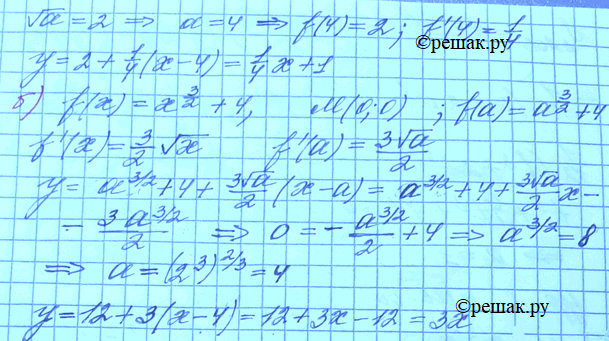 √a = 2 ⇒ a = 4 ⇒ f(4) = 2; f'(4) = 1/4
©решак.ру
y = 2 + 1/4(x-4) = 1/4x + 1
б) f(x) = x^(3/2) + 4, M(0;0) ; f(a) = a^(3/2) + 4
f'(x) = 3/2 √x f'(a) = 3√a/2
y = a^(3/2) + 4 + 3√a/2 (x-a) = a^(3/2) + 4 + 3√a/2 x -
- 3a^(3/2)/2 ⇒ 0 = - a^(3/2)/2 + 4 ⇒ a^(3/2) = 8
⇒ a = (2^3)^(2/3) = 4
©решак.ру
y = 12 + 3(x-4) = 12 + 3x - 12 = 3x